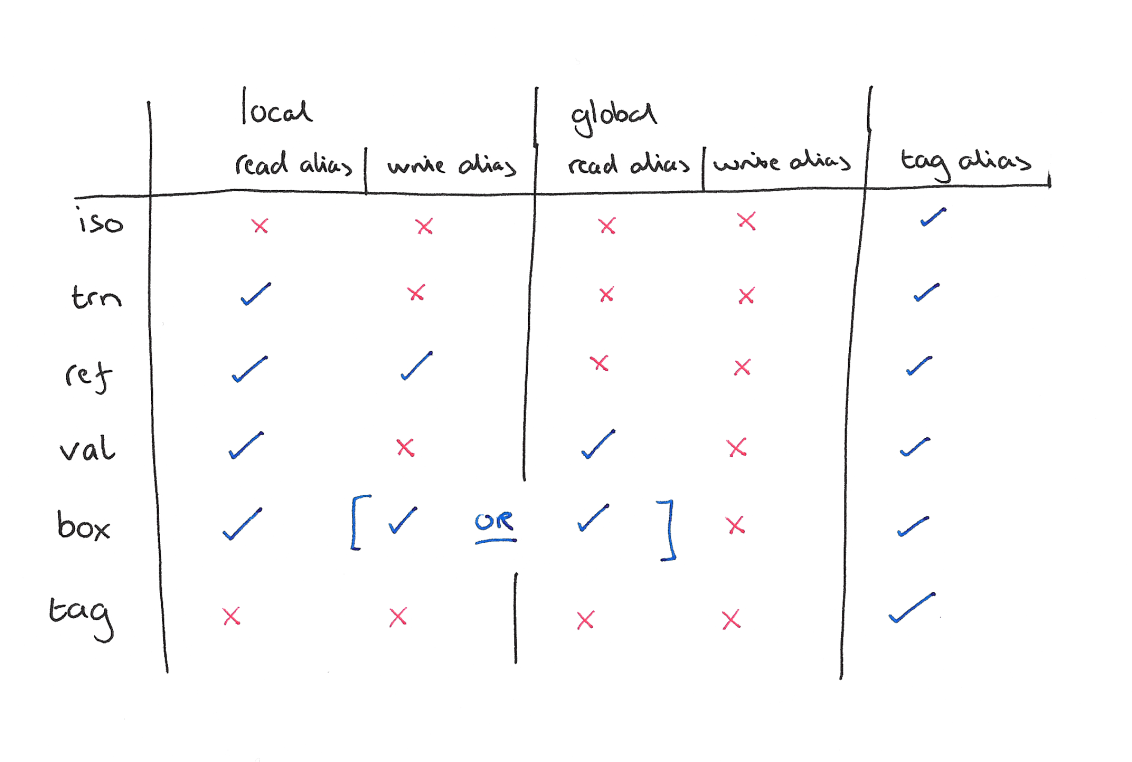 local global
read alias write alias read alias write alias tag alias
iso × × × × ✓
trn ✓ × × × ✓
ref ✓ ✓ × × ✓
val ✓ × ✓ × ✓
box ✓ [ ✓ OR ✓ ] × ✓
tag × × × × ✓